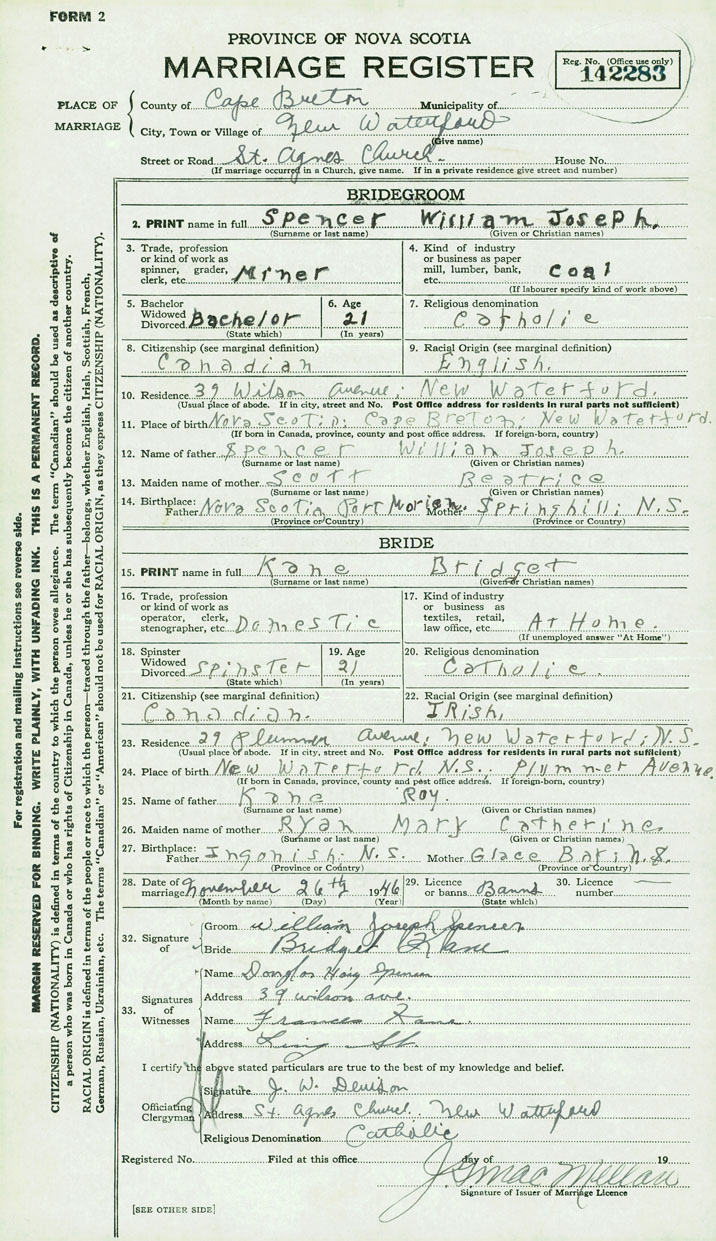 FORM 2
PROVINCE OF NOVA SCOTIA
MARRIAGE REGISTER
Reg. No. (Office use only)
142283
PLACE OF MARRIAGE
County of Cape Breton Municipality of
City, Town or Village of New Waterford
(Give name)
Street or Road St. Agnes Church. House No.
(If marriage occurred in a Church, give name. If in a private residence give street and number)
BRIDEGROOM
2. PRINT name in full Spencer William Joseph.
(Surname or last name) (Given or Christian names)
3. Trade, profession or kind of work as spinner, grader, clerk, etc. Miner
4. Kind of industry or business as paper mill, lumber, bank, etc. Coal
(If labourer specify kind of work above)
5. Bachelor Widowed Divorced Bachelor
(State which)
6. Age 21
(In years)
7. Religious denomination
Catholic
8. Citizenship (see marginal definition)
Canadian
9. Racial Origin (see marginal definition)
English.
10. Residence 39 Wilson Avenue; New Waterford.
(Usual place of abode. If in city, street and No. Post Office address for residents in rural parts not sufficient)
11. Place of birth Nova Scotia; Cape Breton, New Waterford.
(If born in Canada, province, county and post office address. If foreign-born, country)
12. Name of father Spencer William Joseph.
(Surname or last name) (Given or Christian names)
13. Maiden name of mother Scott Beatrice
(Surname or last name) (Given or Christian names)
14. Birthplace:
Father Nova Scotia Port Morien. Mother Springhill; N.S.
(Province or Country) (Province or Country)
BRIDE
15. PRINT name in full Kane Bridget
(Surname or last name) (Given or Christian names)
16. Trade, profession or kind of work as operator, clerk, stenographer, etc. Domestic
17. Kind of industry or business as textiles, retail, law office, etc. At Home.
(If unemployed answer "At Home")
18. Spinster Widowed Divorced Spinster
(State which)
19. Age 21
(In years)
20. Religious denomination
Catholic.
21. Citizenship (see marginal definition)
Canadian.
22. Racial Origin (see marginal definition)
Irish,
23. Residence 29 Plummer Avenue; New Waterford; N.S.
(Usual place of abode. If in city, street and No. Post Office address for residents in rural parts not sufficient)
24. Place of birth New Waterford N.S., Plummer Avenue.
(If born in Canada, province, county and post office address. If foreign-born, country)
25. Name of father Kane Roy.
(Surname or last name) (Given or Christian names)
26. Maiden name of mother Ryan Mary Catherine
(Surname or last name) (Given or Christian names)
27. Birthplace:
Father Ingonish; N.S. Mother Glace Bay; N.S.
(Province or Country) (Province or Country)
28. Date of marriage November 26th 1946
(Month by name) (Day) (Year)
29. Licence or banns Banns
(State which)
30. Licence number
32. Signature of
Groom William Joseph Spencer
Bride Bridget Kane
33. Signatures of Witnesses
Name Douglas Haig Spencer
Address 39 Wilson ave.
Name Frances Kane.
Address King St.
I certify the above stated particulars are true to the best of my knowledge and belief.
Officiating Clergyman
Signature J. W. Denison
Address St. Agnes Church. New Waterford
Religious Denomination Catholic
Registered No. Filed at this office day of 19
Signature of Issuer of Marriage Licence
[SEE OTHER SIDE]
For registration and mailing instructions see reverse side.
MARGIN RESERVED FOR BINDING. WRITE PLAINLY, WITH UNFADING INK. THIS IS A PERMANENT RECORD.
CITIZENSHIP (NATIONALITY) is defined in terms of the country to which the person owes allegiance. The term "Canadian" should be used as descriptive of
a person who was born in Canada or who has rights of Citizenship in Canada, unless he or she has subsequently become the citizen of another country.
RACIAL ORIGIN is defined in terms of the people or race to which the person—traced through the father—belongs, whether English, Irish, Scottish, French,
German, Russian, Ukrainian, etc. The terms "Canadian" or "American" should not be used for RACIAL ORIGIN, as they express CITIZENSHIP (NATIONALITY).